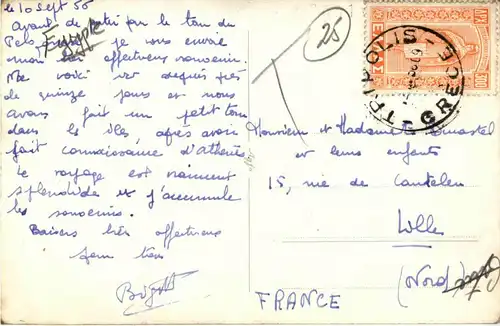 le 10 sept 56
Avant de partir par le tour du
Peloponnèse je vous envoie
mon très affectueux souvenir.
Me voici ici depuis près
de quinze jours et nous
avons fait un petit tour
dans les îles après avoir
fait connaissance d'Athènes
Le voyage est vraiment
splendide et j'accumule
les souvenirs.
Baisers très affectueux
25
ΕΛΛΑΣ
300
TRIPOLIS
GRECE
Monsieur et Madame
et leurs enfants
15, rue de Canteleu
Lille
(Nord)
FRANCE